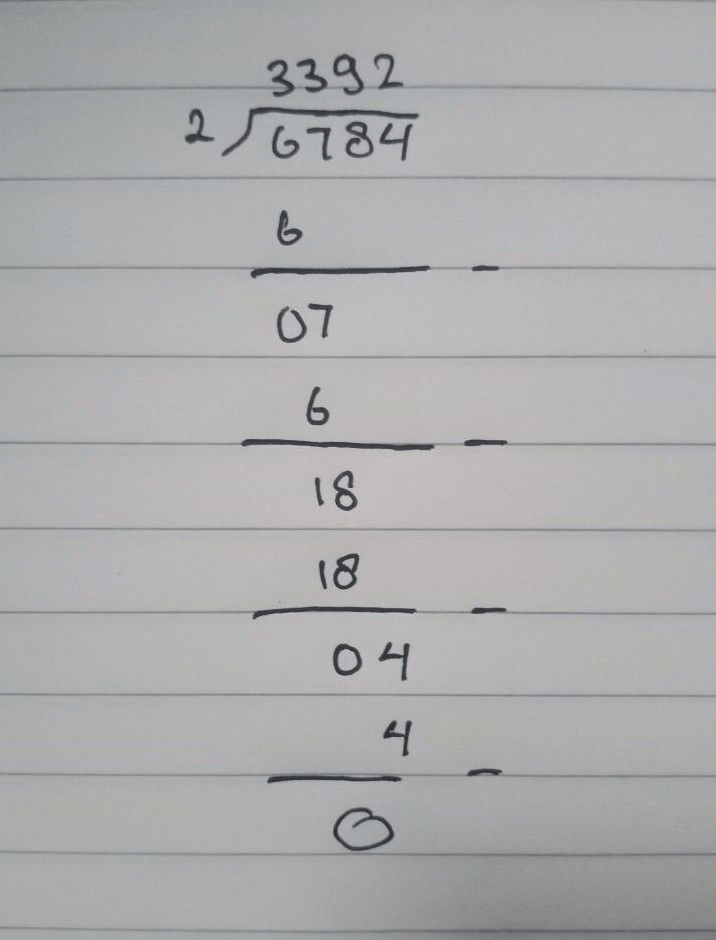 3392
2 6784
6
07
6
18
18
04
4
0